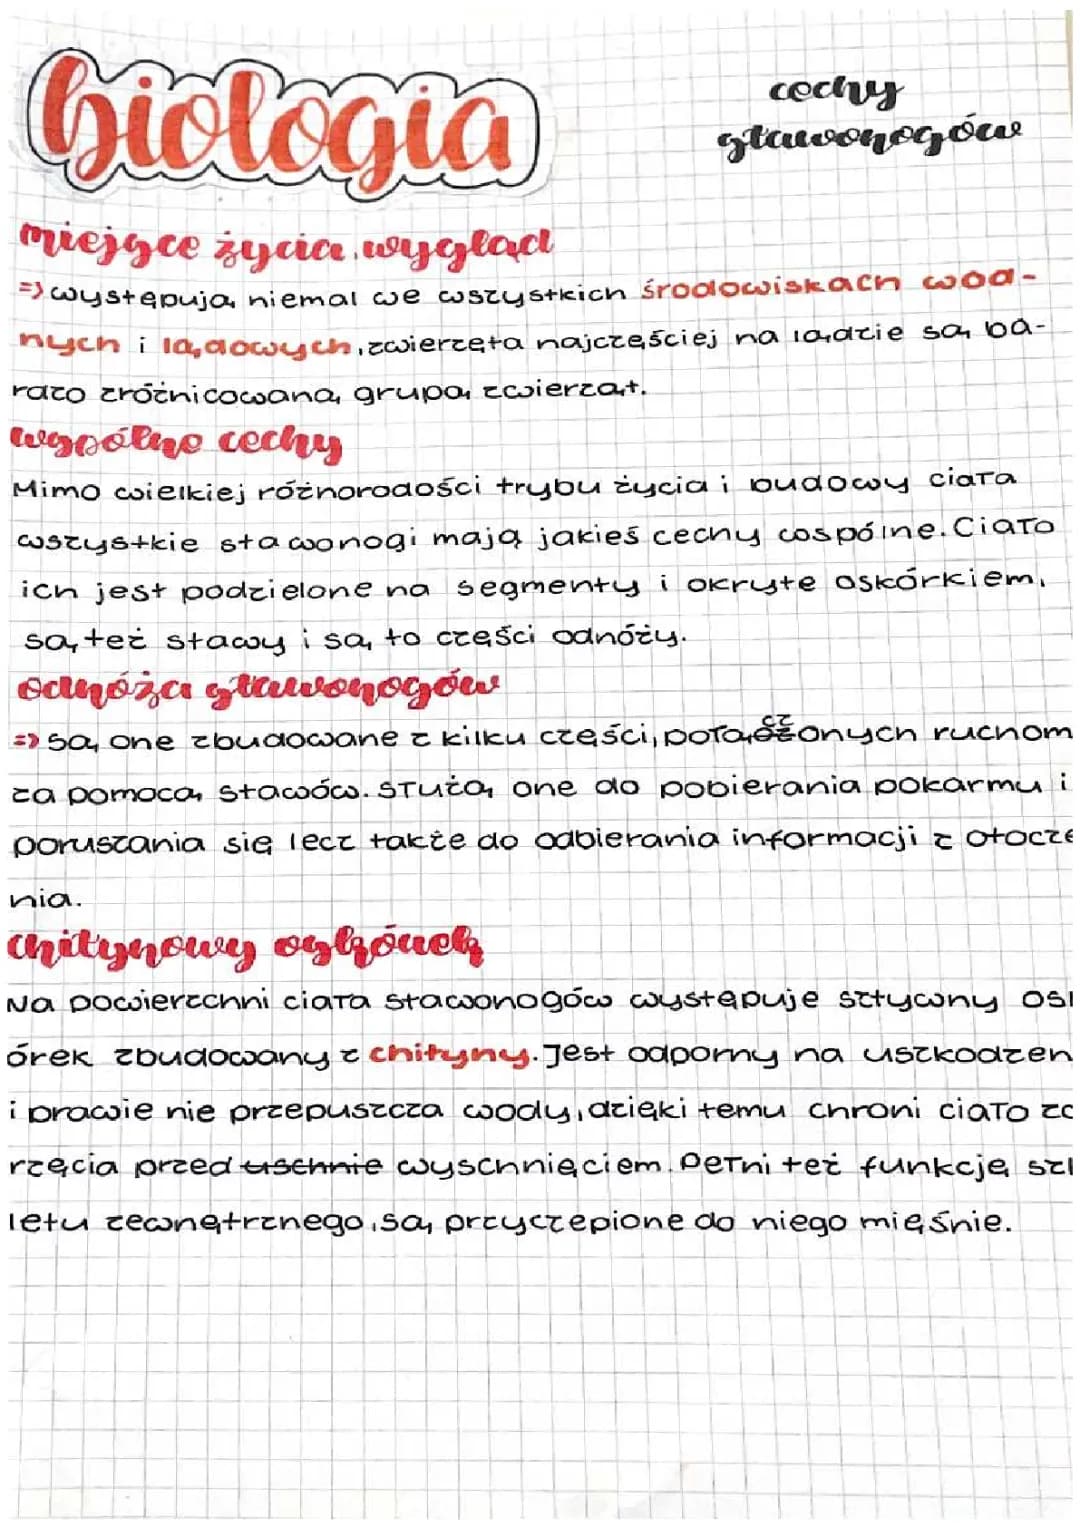 biologia
cechy
stawonogów
miejsce życia, wygląd
=> występują niemal we wszystkich środowiskach wod-
nych i lądowych, zwierzęta najczęściej na lądzie są ba-
rdzo zróżnicowaną grupą zwierząt.
wspólne cechy
Mimo wielkiej różnorodości trybu życia i budowy ciała
wszystkie stawonogi mają jakieś cechy wspólne. Ciało
ich jest podzielone na segmenty i okryte oskórkiem,
są też stawy i są to części odnóży.
odnóża stawonogów
=> są one zbudowane z kilku części, połączonych ruchom
za pomocą stawów. Służą one do pobierania pokarmu i
poruszania się lecz także do odbierania informacji z otocze
nia.
chitynowy oskórek
Na powierzchni ciała stawonogów występuje sztywny os
órek zbudowany z chityny. Jest odporny na uszkodzen
i prawie nie przepuszcza wody, dzięki temu chroni ciało
rzęcia przed uschnie wyschnięciem. Pełni też funkcję
letu zewnętrznego, są przyczepione do niego mięśnie.